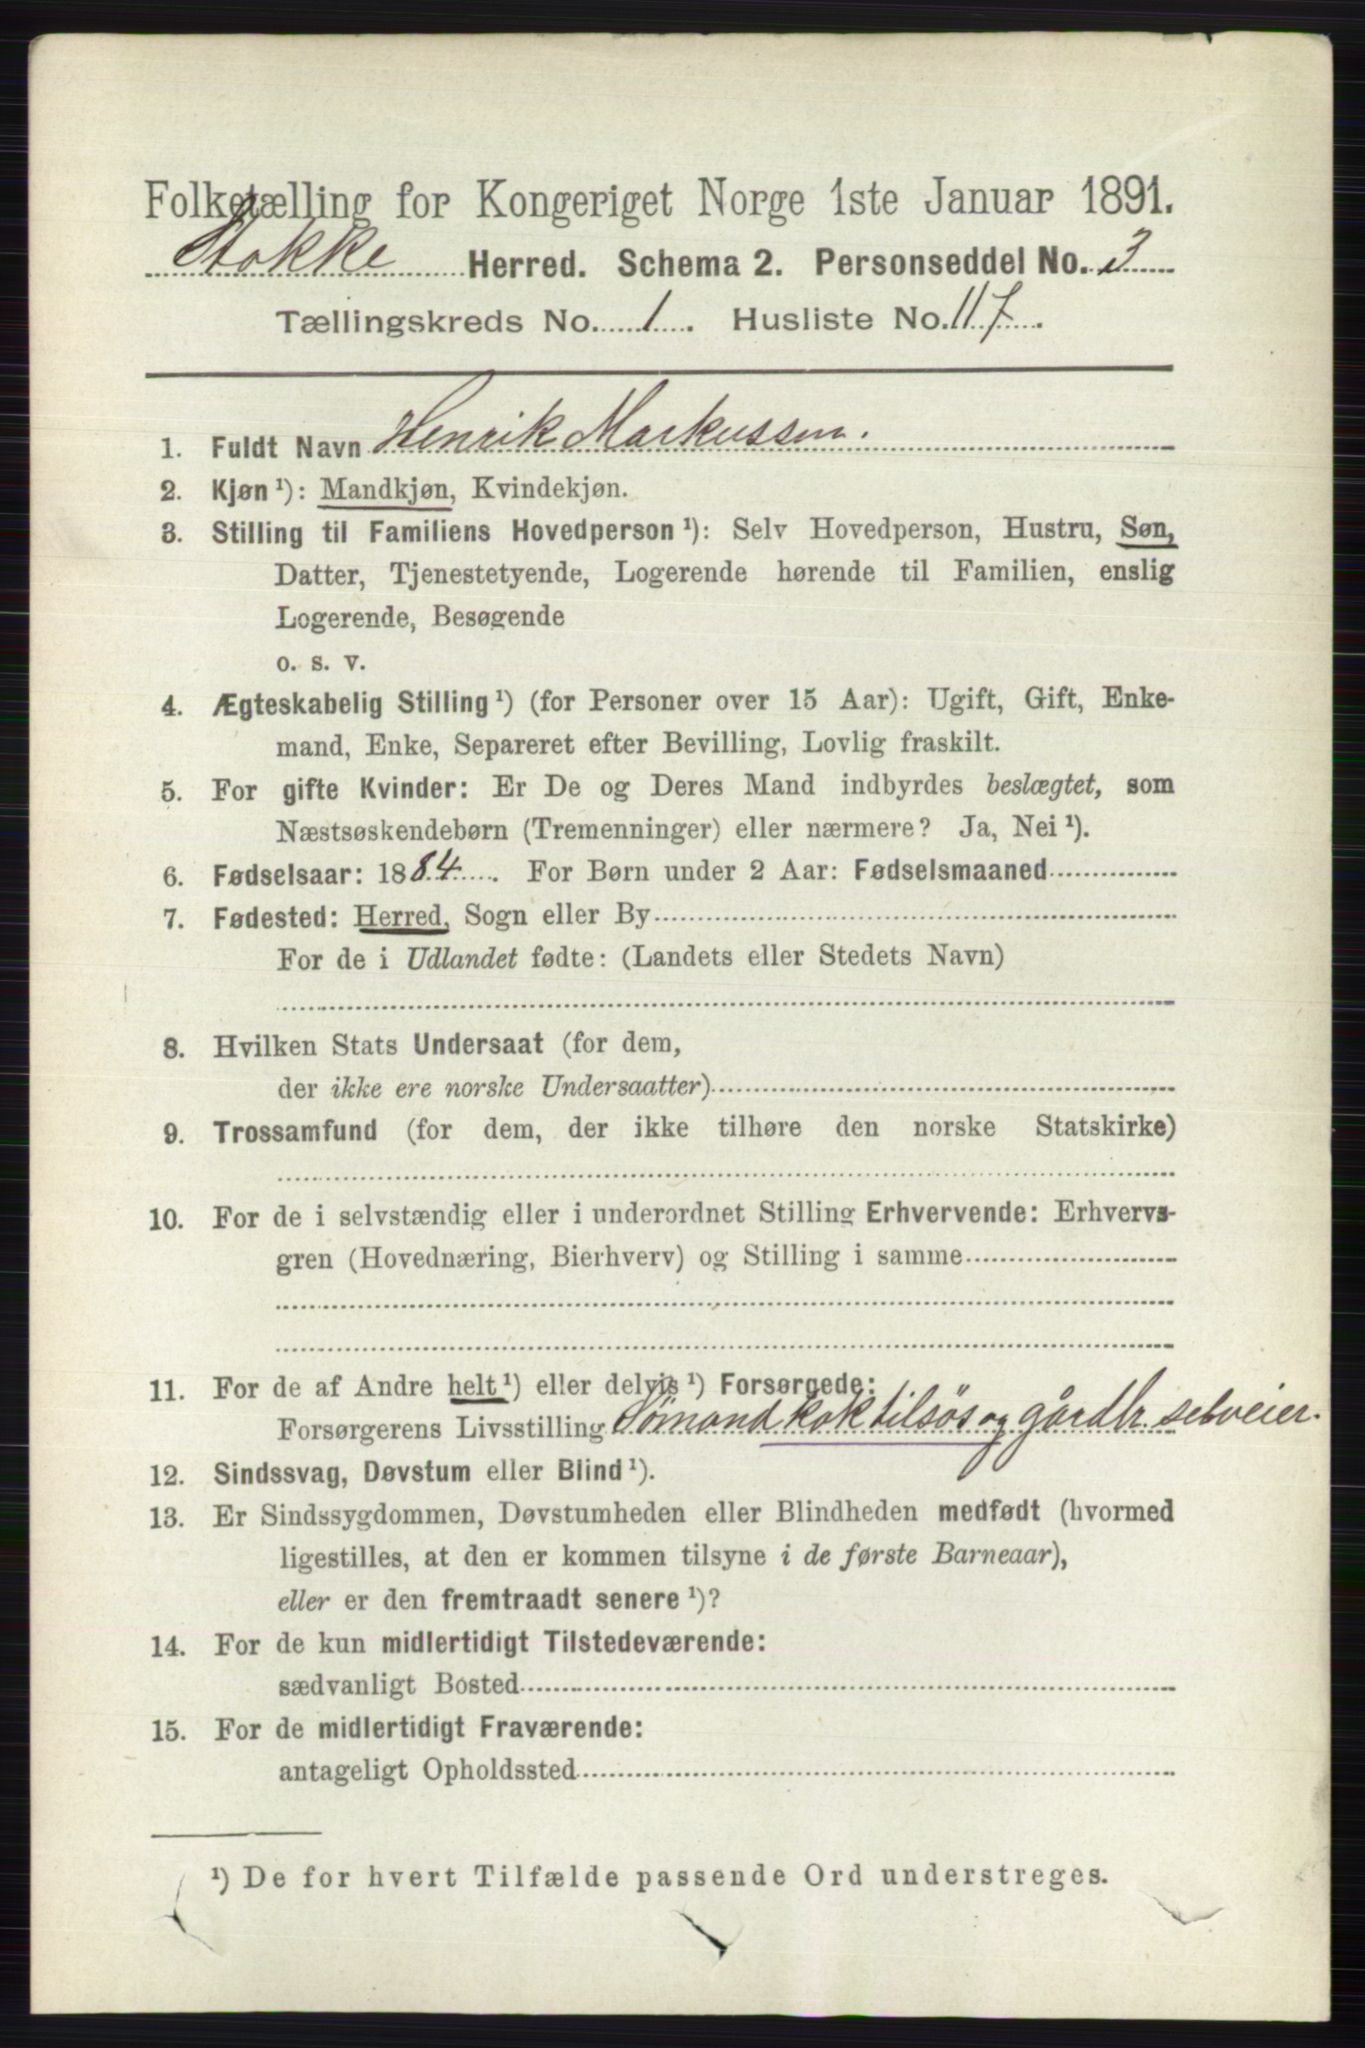 Folketælling for Kongeriget Norge 1ste Januar 1891.
Stokke Herred. Schema 2. Personseddel No. 3
Tællingskreds No. 1. Husliste No. 117.
1. Fuldt Navn Henrik Markussen.
2. Kjøn ¹): Mandkjøn, Kvindekjøn.
3. Stilling til Familiens Hovedperson ¹): Selv Hovedperson, Hustru, Søn,
Datter, Tjenestetyende, Logerende hørende til Familien, enslig
Logerende, Besøgende
o. s. v.
4. Ægteskabelig Stilling ¹) (for Personer over 15 Aar): Ugift, Gift, Enke-
mand, Enke, Separeret efter Bevilling, Lovlig fraskilt.
5. For gifte Kvinder: Er De og Deres Mand indbyrdes beslægtet, som
Næstsøskendebørn (Tremenninger) eller nærmere? Ja, Nei ¹).
6. Fødselsaar: 1884. For Børn under 2 Aar: Fødselsmaaned
7. Fødested: Herred, Sogn eller By
For de i Udlandet fødte: (Landets eller Stedets Navn)
8. Hvilken Stats Undersaat (for dem,
der ikke ere norske Undersaatter)
9. Trossamfund (for dem, der ikke tilhøre den norske Statskirke)
10. For de i selvstændig eller i underordnet Stilling Erhvervende: Erhvervs-
gren (Hovednæring, Bierhverv) og Stilling i samme
11. For de af Andre helt ¹) eller delvis ¹) Forsørgede:
Forsørgerens Livsstilling Sømand kok tilsøs og gårdbr. selveier.
12. Sindssvag, Døvstum eller Blind ¹).
13. Er Sindssygdommen, Døvstumheden eller Blindheden medfødt (hvormed
ligestilles, at den er kommen tilsyne i de første Barneaar),
eller er den fremtraadt senere ¹)?
14. For de kun midlertidigt Tilstedeværende:
sædvanligt Bosted
15. For de midlertidigt Fraværende:
antageligt Opholdssted
¹) De for hvert Tilfælde passende Ord understreges.